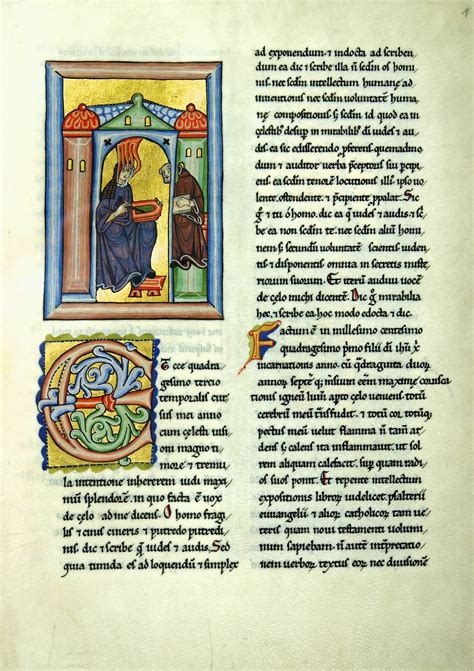 Et ecce quadra
gesimo tercio
temporalis cur
sus mei anno
cum celesti uisi
oni magno ti
more & tremu
la intentione inhererem uidi maxi
mū splendorē. in quo facta ē uox
de celo ad me dicens. O homo fragi
lis & cinis cineris & putredo putredi
nis. dic & scribe q̄ uides & audis. Sed
quia timida es ad loquendū & simplex
ad exponendum & indocta ad scriben
dum ea dic & scribe illa n̄ scdm os homi
nis. nec scdm intellectum humane ad
inuentionis nec scdm uoluntatē huma
ne compositionis s; scdm id quod ea in
celestib; desup in mirabilib; di uides & au
dis. ea sic edisserendo pferens quemadmo
dum & auditor uerba pceptoris sui pcipi
ens. ea scdm tenorē locutionis illi. ipso uo
lente. ostendente. & pcipiente ppalat. Sic
g & tu o homo. dic ea q̄ uides & audis. & scri
be ea non scdm te. nec scdm aliū homi
nem s; secundū uoluntatē scientis uiden
tis & disponentis omnia in secretis miste
riorum suorum. Et iterū audiui uocē
de celo michi dicentē. Dic g mirabilia
hec. & scribe ea hoc modo edocta & dic.
Factum ē in millesimo centesimo
quadragesimo pmo filii di ihu x
incarnationis anno. cū q̄draginta duor
annor septē q; msium eēm maxime corusca
tionis igneū lum apto celo ueniens. totū
cerebrū meū tnsfudit. & totū cor totūq;
pectus meū uelut flamma n̄ tam ar
dens s; calens ita inflammauit. ut sol
rem aliquam calefacit. sup quam radi
os suos ponit. Et repente intellectum
expositionis libror uidelicet psalterii
euuangelii & alior catholicor tam ue
teris quam noui testamenti uolumi
num sapiebam. n̄ autē intpretatio
nem uerbor textus eor nec diuisionē